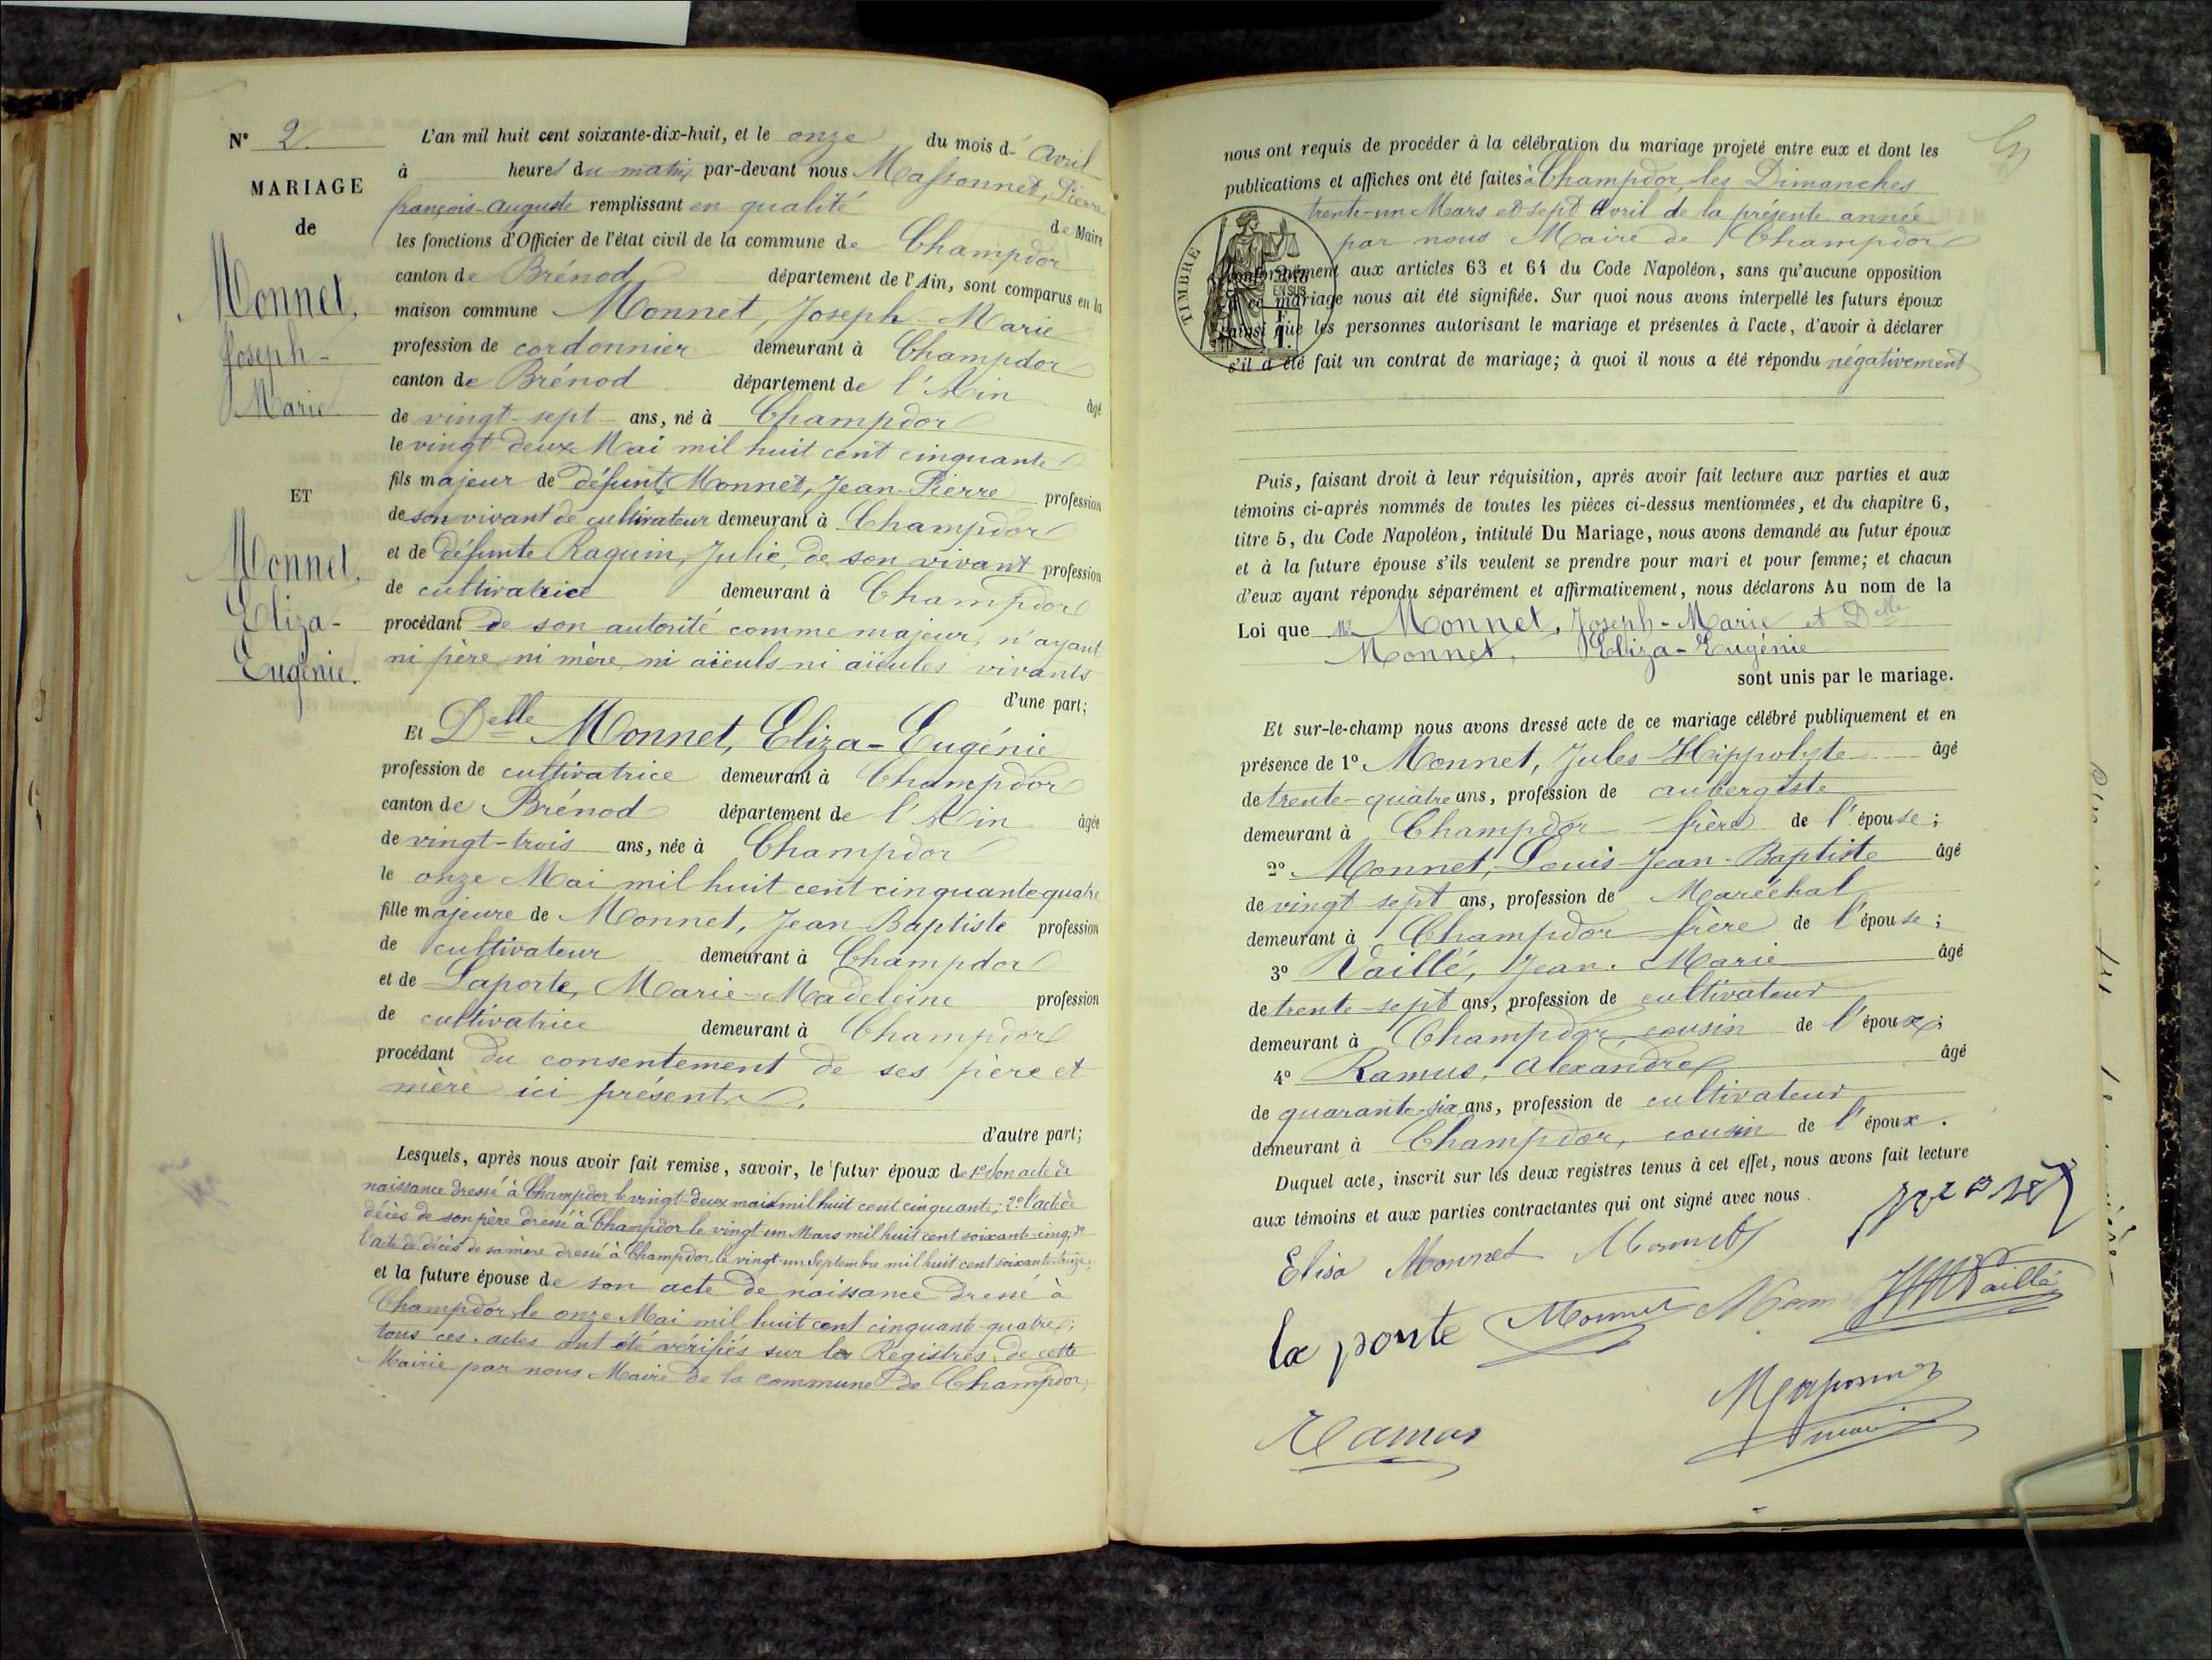 N° 2.
MARIAGE
de
Monnet,
Joseph-
Marie
ET
Monnet,
Eliza-
Eugénie.
L'an mil huit cent soixante-dix-huit, et le onze du mois d' Avril
à heures du matin par-devant nous Massonnet, Pierre
françois-Auguste remplissant en qualité de Maire
les fonctions d'Officier de l'état civil de la commune de Champdor
canton de Brénod département de l'Ain, sont comparus en la
maison commune Monnet, Joseph-Marie
profession de cordonnier demeurant à Champdor
canton de Brénod département de l'Ain âgé
de vingt-sept ans, né à Champdor
le vingt-deux Mai mil huit cent cinquante
fils majeur de défunt Monnet, Jean-Pierre profession
de son vivant de cultivateur demeurant à Champdor
et de défunte Raquin, Julie, de son vivant profession
de cultivatrice demeurant à Champdor
procédant de son autorité comme majeur, n'ayant
ni père, ni mère, ni aïeuls ni aïeules vivants
d'une part;
Et Delle Monnet, Eliza-Eugénie
profession de cultivatrice demeurant à Champdor
canton de Brénod département de l'Ain âgée
de vingt-trois ans, née à Champdor
le onze Mai mil huit cent cinquante quatre
fille majeure de Monnet, Jean-Baptiste profession
de cultivateur demeurant à Champdor
et de Laporte, Marie-Madeleine profession
de cultivatrice demeurant à Champdor
procédant du consentement de ses père et
mère ici présents.
d'autre part;
Lesquels, après nous avoir fait remise, savoir, le futur époux de 1° son acte de
naissance dressé à Champdor le vingt-deux mai mil huit cent cinquante; 2° l'acte de
décès de son père dressé à Champdor le vingt-un Mars mil huit cent soixante-cinq; 3°
l'acte de décès de sa mère dressé à Champdor, le vingt-un Septembre mil huit cent soixante-treize;
et la future épouse de son acte de naissance dressé à
Champdor, le onze Mai mil huit cent cinquante-quatre;
tous ces actes ont été vérifiés sur les Registres de cette
Mairie par nous Maire de la commune de Champdor,
nous ont requis de procéder à la célébration du mariage projeté entre eux et dont les
publications et affiches ont été faites à Champdor, les Dimanches
trente-un Mars et sept Avril de la présente année
par nous Maire de Champdor
TIMBRE
EN SUS
conformément aux articles 63 et 64 du Code Napoléon, sans qu'aucune opposition
à ce mariage nous ait été signifiée. Sur quoi nous avons interpellé les futurs époux
ainsi que les personnes autorisant le mariage et présentes à l'acte, d'avoir à déclarer
s'il a été fait un contrat de mariage; à quoi il nous a été répondu négativement
Puis, faisant droit à leur réquisition, après avoir fait lecture aux parties et aux
témoins ci-après nommés de toutes les pièces ci-dessus mentionnées, et du chapitre 6,
titre 5, du Code Napoléon, intitulé Du Mariage, nous avons demandé au futur époux
et à la future épouse s'ils veulent se prendre pour mari et pour femme; et chacun
d'eux ayant répondu séparément et affirmativement, nous déclarons Au nom de la
Loi que Mr Monnet, Joseph-Marie et Delle
Monnet, Eliza-Eugénie
sont unis par le mariage.
Et sur-le-champ nous avons dressé acte de ce mariage célébré publiquement et en
présence de 1° Monnet, Jules-Hippolyte âgé
de trente-quatre ans, profession de aubergiste
demeurant à Champdor frère de l'épouse;
2° Monnet, Louis-Jean-Baptiste âgé
de vingt sept ans, profession de Maréchal
demeurant à Champdor frère de l'épouse;
3° Vaillé, Jean-Marie âgé
de trente-sept ans, profession de cultivateur
demeurant à Champdor, cousin de l'époux;
4° Ramus, Alexandre âgé
de quarante-six ans, profession de cultivateur
demeurant à Champdor, cousin de l'époux.
Duquel acte, inscrit sur les deux registres tenus à cet effet, nous avons fait lecture
aux témoins et aux parties contractantes qui ont signé avec nous.
Elisa Monnet Monnet
la porte Monnet Vaillé
Ramus